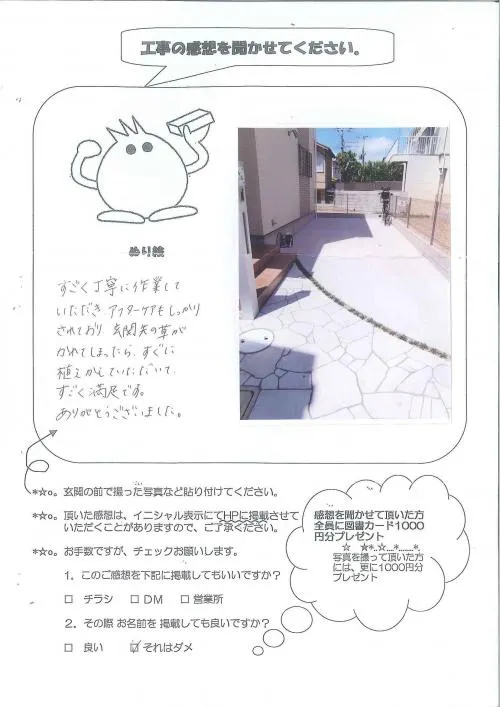 工事の感想を聞かせてください。
ぬり絵
すごく丁寧に作業して
いただき、アフターケアもしっかり
されており、玄関先の草が
かれてしまったら、すぐに
植えかえていただいて、
すごく満足です。
ありがとうございました。
*☆o。玄関の前で撮った写真など貼り付けてください。
*☆o。頂いた感想は、イニシャル表示にてHPに掲載させて
いただくことがありますので、ご了承ください。
*☆o。お手数ですが、チェックお願いします。
1．このご感想を下記に掲載してもいいですか？
□ チラシ □ DM □ 営業所
2．その際 お名前を 掲載しても良いですか？
□ 良い ☑ それはダメ
感想を聞かせて頂いた方
全員に図書カード1000
円分プレゼント
☆ ☆*..☆....*.......*.
写真を撮って頂いた方
には、更に1000円分
プレゼント